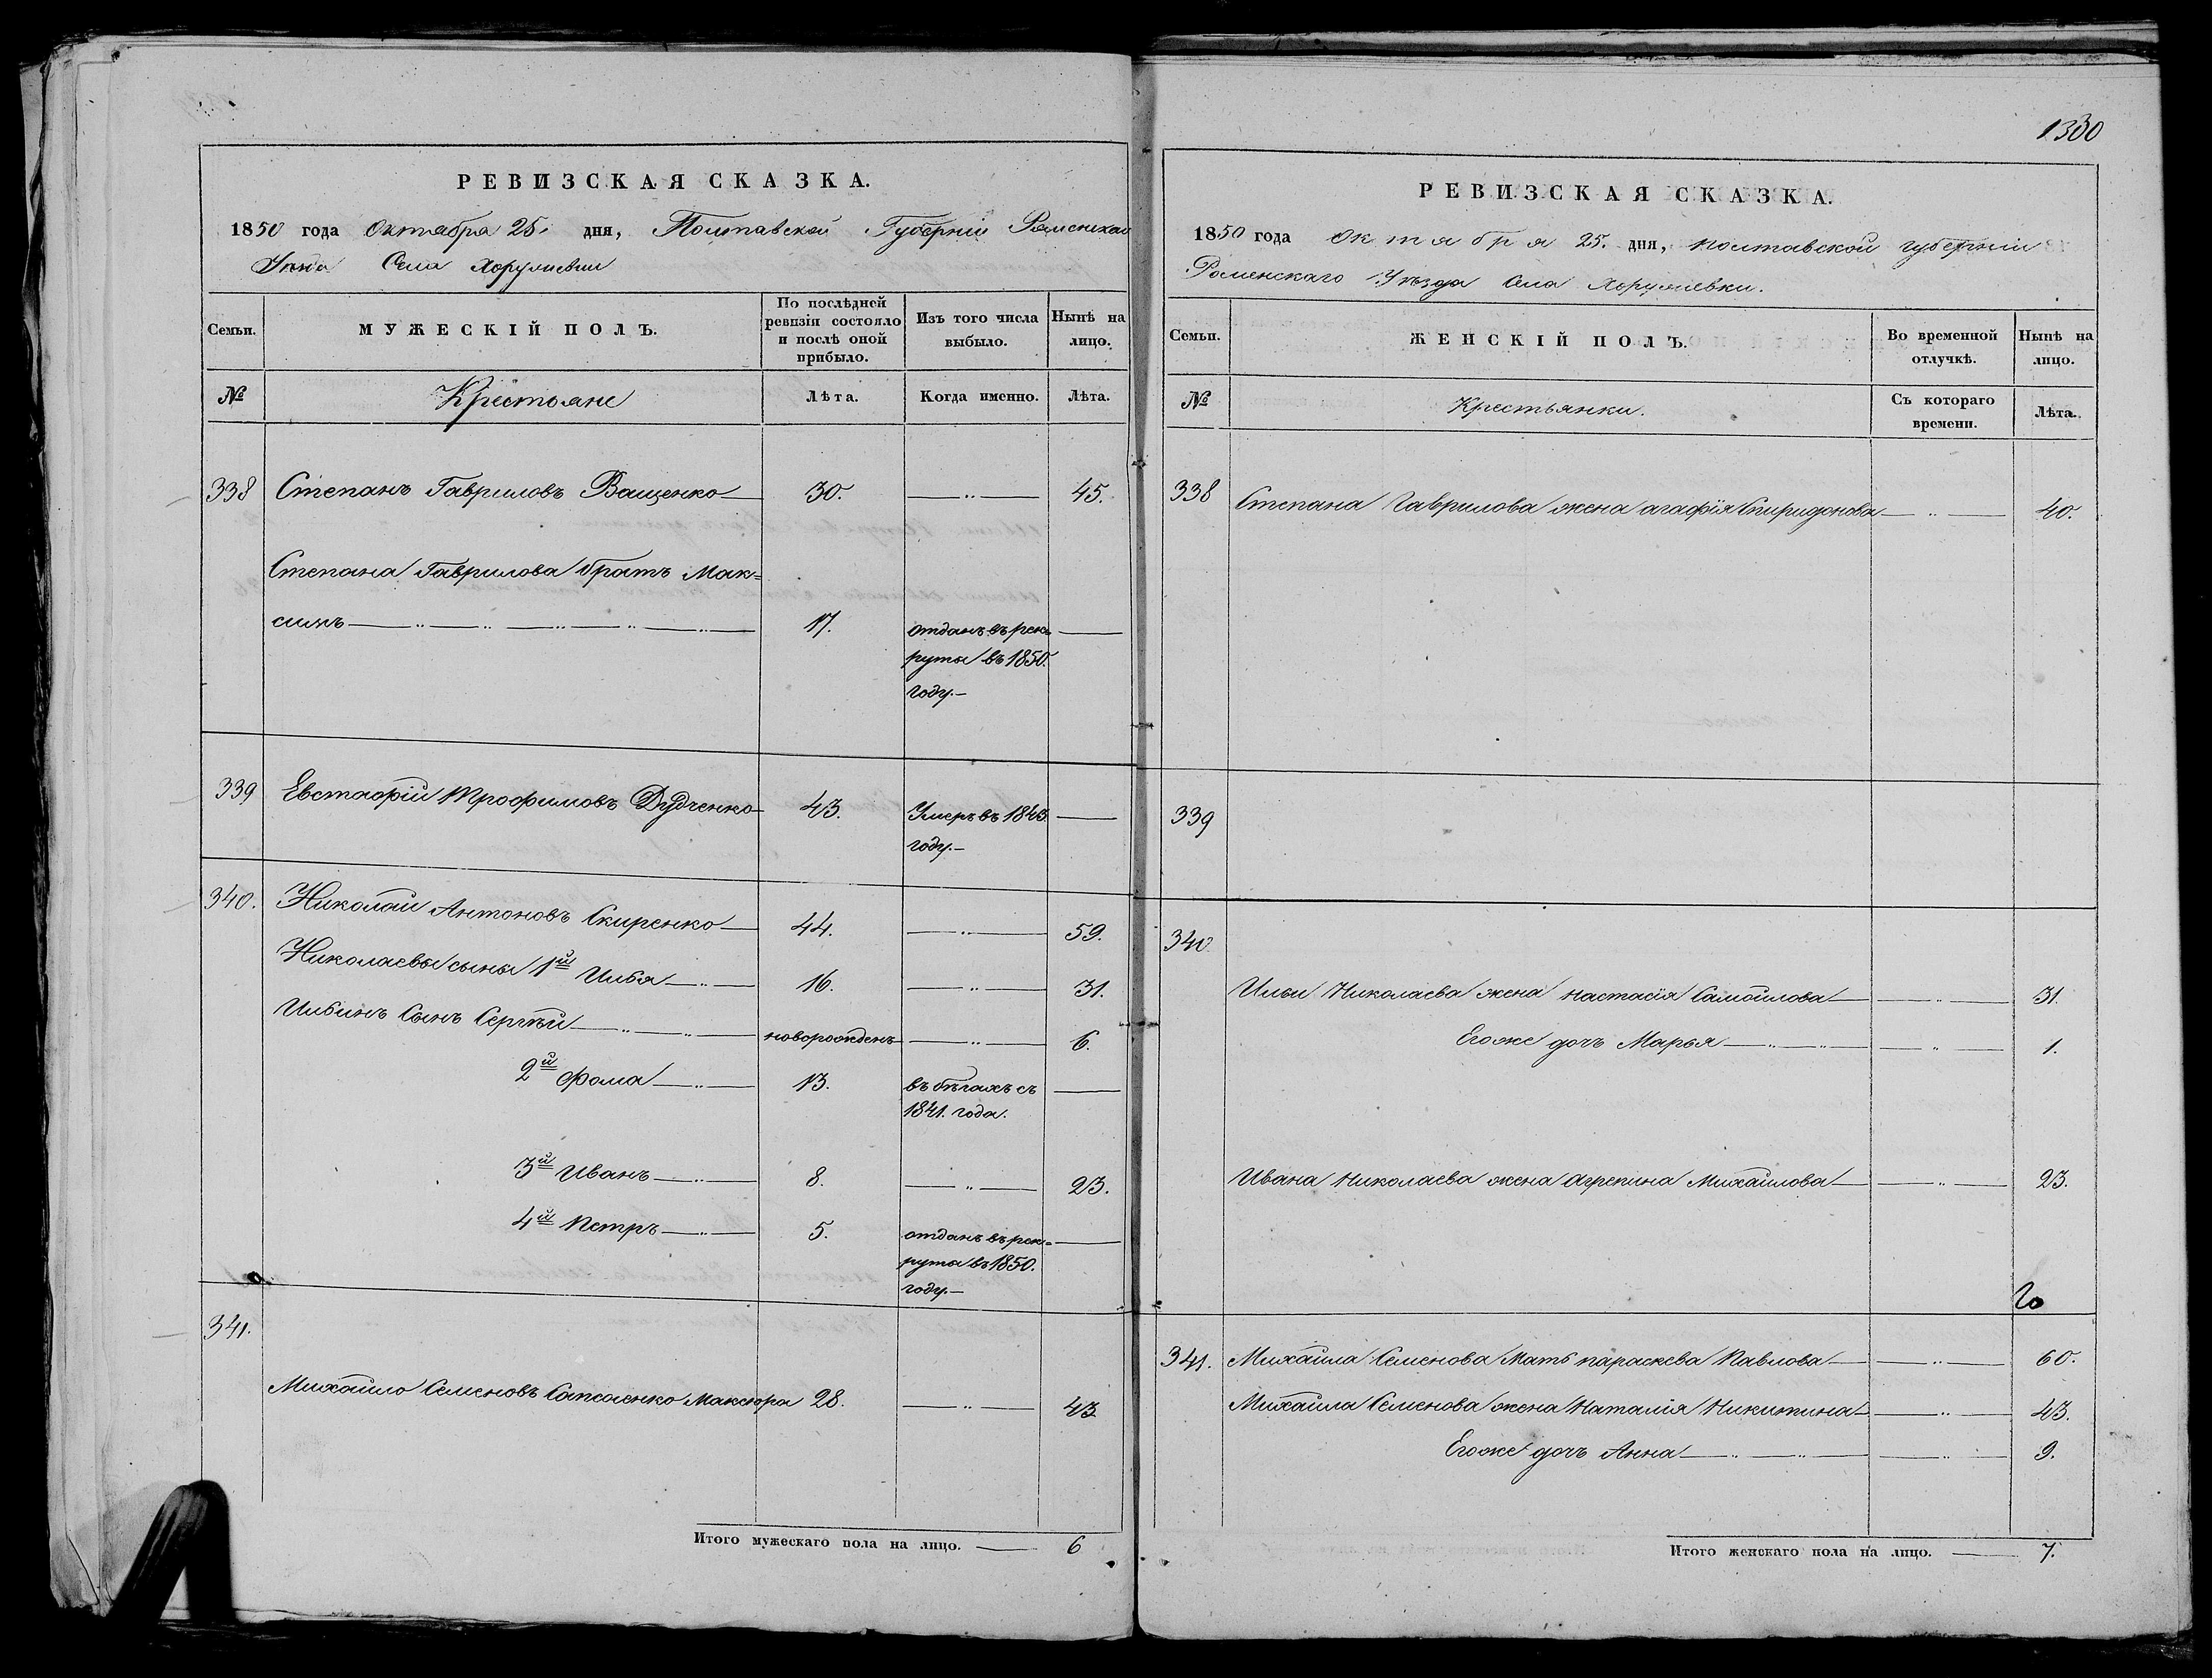 РЕВИЗСКАЯ СКАЗКА.
1850 года Октября 25. дня, Полтавской Губерніи Роменскаго
Уезда Села Хоружевки
Семьи.
МУЖЕСКІЙ ПОЛЪ.
По послѣдней
ревизіи состояло
и послѣ оной
прибыло.
Изъ того числа
выбыло.
Нынѣ на
лицо.
№
Крестьяне
Лѣта.
Когда именно.
Лѣта.
338 Степанъ Гавриловъ Ващенко — 30. — „ — 45.
Степана Гаврилова братъ Мак=
симъ — 17. отданъ въ рек= —
руты въ 1850.
году.—
339 Евстафій Трофимовъ Дудченко — 43. Умеръ въ 1843. —
году.—
340. Николай Антоновъ Скиренко — 44. — „ — 59.
Николаевы сыны 1й Илья — „ — 16. — „ — 31.
Ильинъ Сынъ Сергѣй — „ — „ — новорожденъ — „ — 6.
2й Фома — „ — 13. въ бѣгахъ съ —
1841. года.
3й Иванъ — „ — 8. — „ — 23.
4й Петръ — „ — 5. отданъ въ рек= —
руты въ 1850.
году.—
341.
Михайло Семеновъ Сапсаенко Максюра 28. — „ — 43
Итого мужескаго пола на лицо. — 6
1330
РЕВИЗСКАЯ СКАЗКА.
1850 года Октября 25. дня, Полтавской губерніи
Роменскаго Уѣзда Села Хоружевки.
Семьи.
ЖЕНСКІЙ ПОЛЪ.
Во временной
отлучкѣ.
Нынѣ на
лицо.
№
Крестьянки.
Съ котораго
времени.
Лѣта.
338 Степана Гаврилова жена агафія Спиридонова — „ — 40.
339
340
Ильи Николаева жена настасія Самойлова — — „ — 31.
Егоже дочь Марья — „ — „ — — „ — 1.
Ивана Николаева жена Агрепина Михайлова — — „ — 23.
341. Михайла Семенова Мать параскева Павлова — — „ — 60.
Михайла Семенова жена Наталія Никитина — — „ — 43.
Егоже дочь Анна — „ — „ — — „ — 9.
Итого женскаго пола на лицо. — 7.